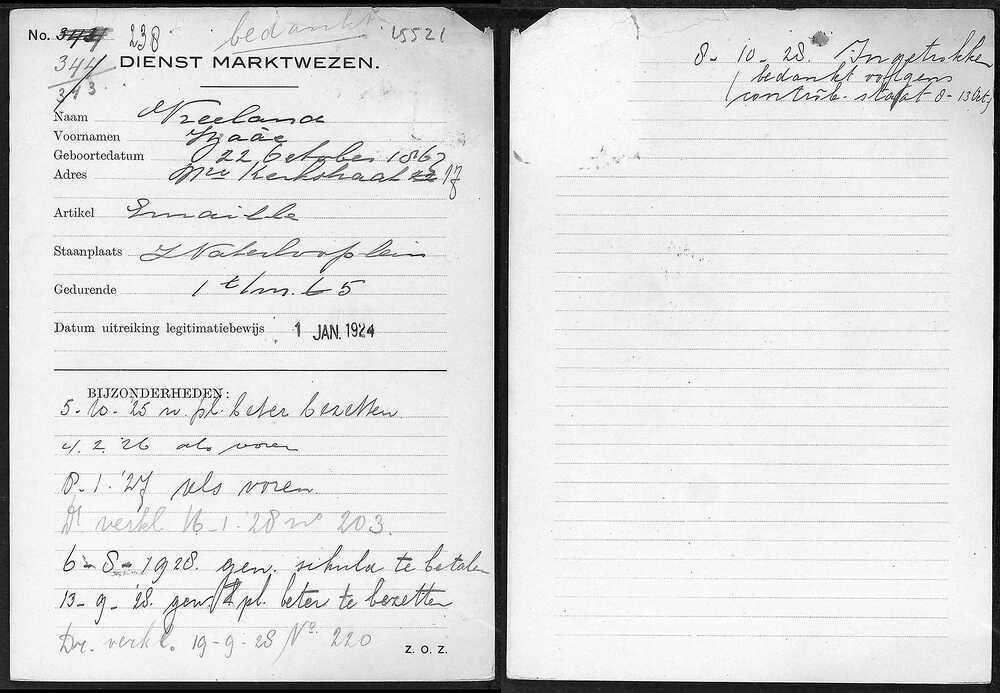 No. 344 238 bedankt 15521
344
343
DIENST MARKTWEZEN.
Naam Vreeland
Voornamen Izaäc
Geboortedatum 22 October 1867
Adres Nwe Kerkstraat 22 17
Artikel Emaille
Staanplaats Waterlooplein
Gedurende 1 t/m. 6 5
Datum uitreiking legitimatiebewijs 1 JAN. 1924
BIJZONDERHEDEN:
5-10-'25 w. pl. beter bezetten
4.2.'26 als voren
8-1-'27 als voren.
Dr verkl. 16-1-'28 no 203.
6-8-1928. gew. schuld te betalen
13-9-'28. gew. pl. beter te bezetten
Dr. verkl. 19-9-28 No. 220
Z. O. Z.
8-10-28. Ingetrokken
bedankt volgens
contrôle-staat 8-13 Oct.)